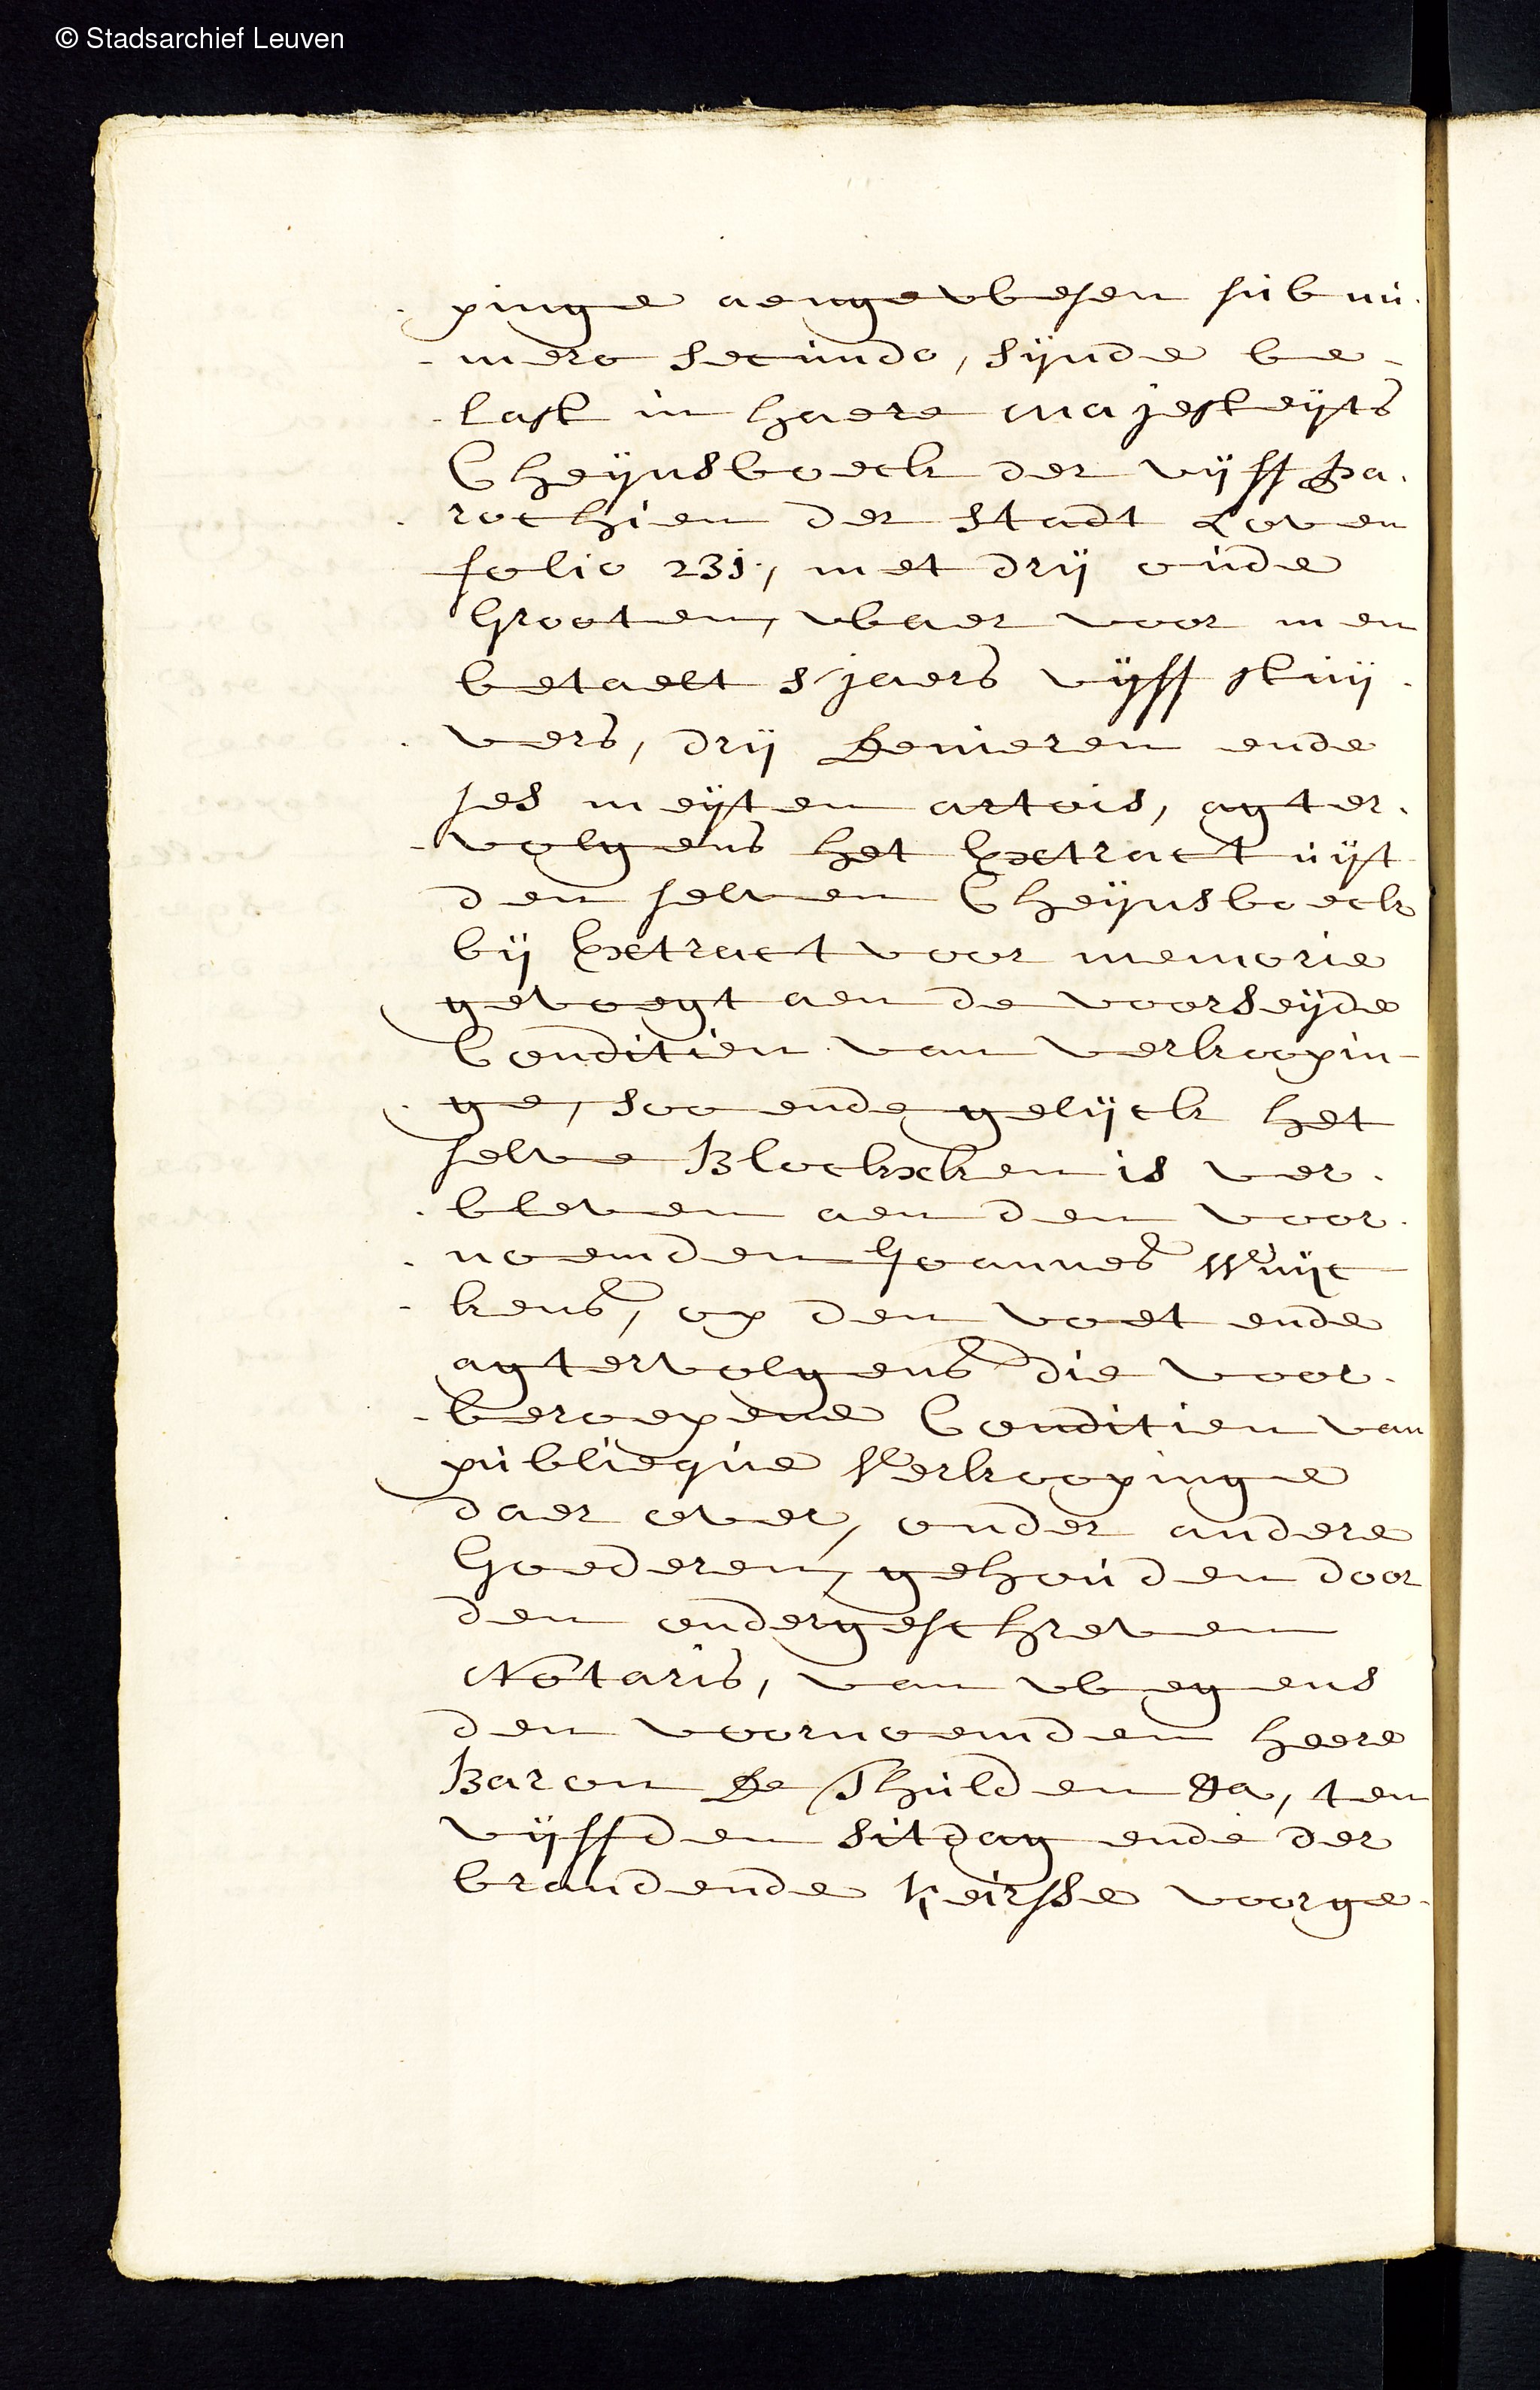 © Stadsarchief Leuven
pinge aengewesen sub nu-
-mero secundo, sijnde be-
-last in haere majesteyts
Cheijnsboeck der vijff pa-
-rochien der stadt Loven
folio 231, met drij oude
Grooten, waer voor men
betaelt s'jaers vijff stuij-
-vers, drij Denieren ende
ses meijten artois, agter-
-volgens het Extract uijt
den selven Cheijnsboeck
bij Extract voor memorie
gevoegt aen de voorseijde
Conditien van verkoopin-
-ge, soo ende gelijck het
selve Blockxken is ver-
-bleven aen den voor-
-noemden Joannes Wuijc
-kens, op den voet ende
agtervolgens die voor-
-beroepene Conditien van
publieque Verkoopinge
daer over, onder andere
Goederen, gehouden door
den ondergeschreven
Notaris, van wegens
den voornoemden heere
Baron De Thulden &a, ten
vijffden sitdag ende der
brandende keirsse voorge-